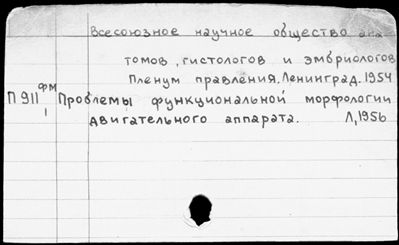 Всесоюзное научное общество ана
томов, гистологов и эмбриологов
Пленум правления, Ленинград. 1954
фм
П 911 Проблемы функциональной морфологии
1 двигательного аппарата. Л, 1956